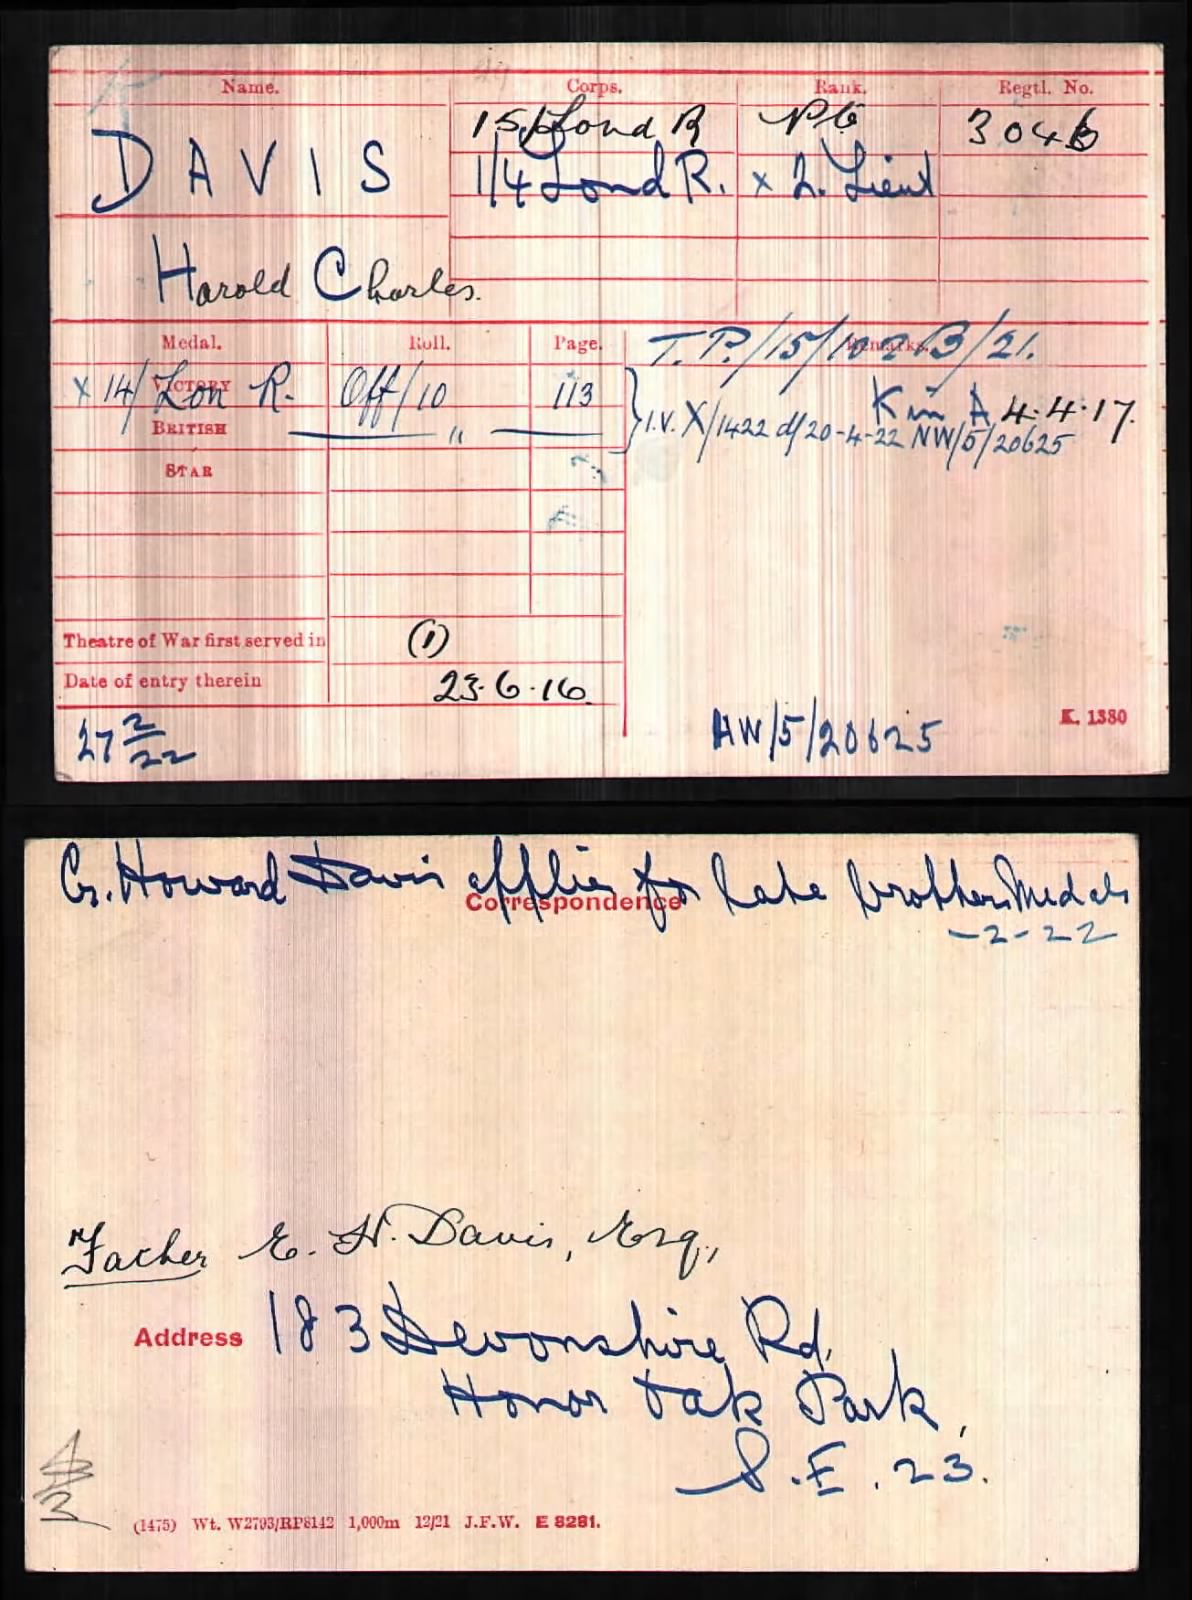 Name. Corps. Rank. Regtl. No.
DAVIS 15/Lond R Pte 3046
1/4 Lond R. x 2. Lieut
Harold Charles.
Medal. Roll. Page. Remarks.
T.P./15/102B/21.
x 14/Lon R. VICTORY Off/10 113
K in A 4.4.17.
BRITISH " I.V. X/1422 d/20-4-22 NW/5/20625
STAR
Theatre of War first served in (1)
Date of entry therein 23.6.16.
27 2/22 NW/5/20625 K. 1380
Howard Davis applies for late brothers Medals
Correspondence
-2-22
Father E. H. Davis, Esq.,
Address 183 Devonshire Rd,
Honor Oak Park,
S.E. 23.
(1475) Wt. W2793/RP8142 1,000m 12/21 J.F.W. E 8281.